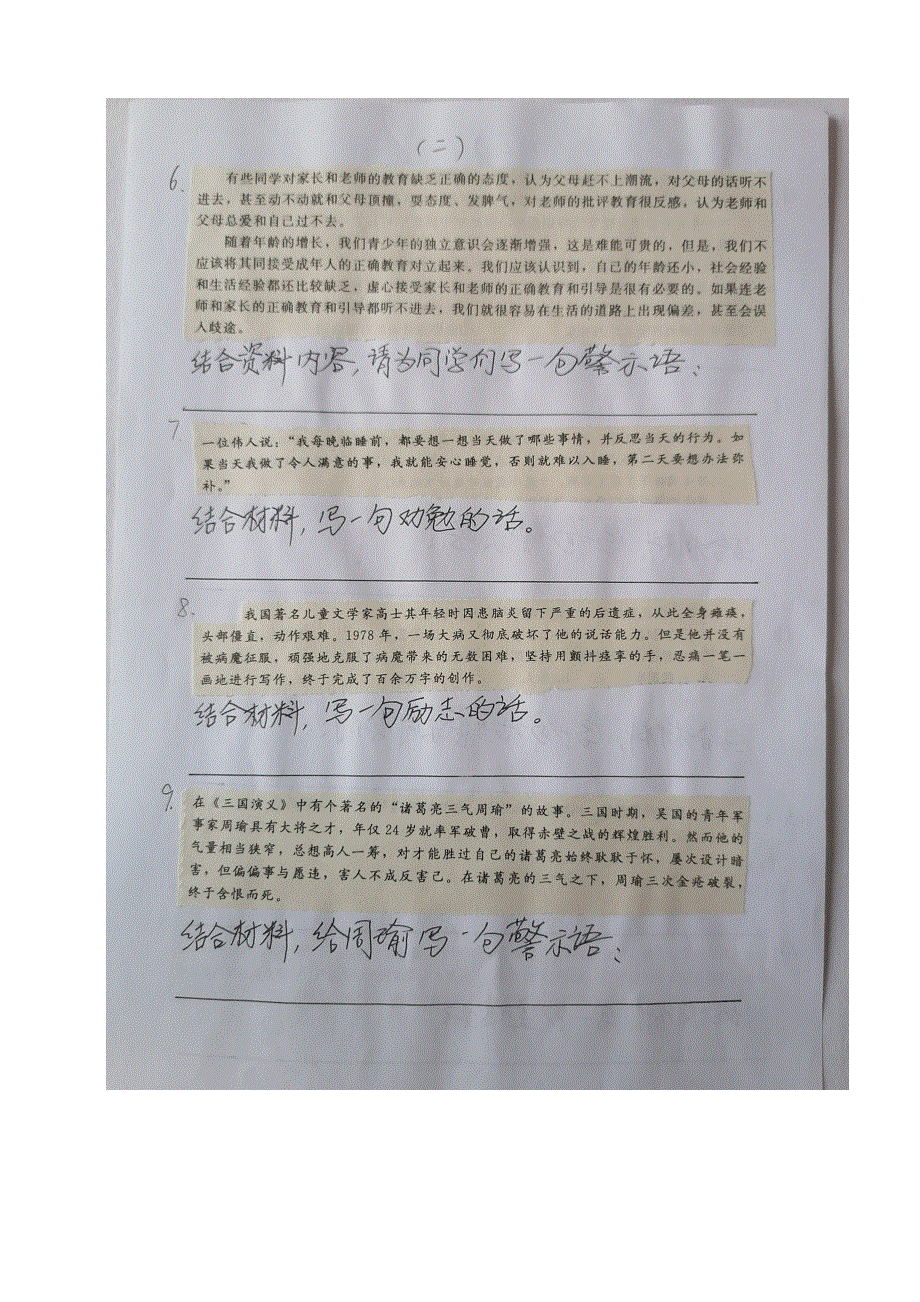 （二）
6、
有些同学对家长和老师的教育缺乏正确的态度，认为父母赶不上潮流，对父母的话听不
进去，甚至动不动就和父母顶撞，耍态度、发脾气，对老师的批评教育很反感，认为老师和
父母总爱和自己过不去。
随着年龄的增长，我们青少年的独立意识会逐渐增强，这是难能可贵的，但是，我们不
应该将其同接受成年人的正确教育对立起来。我们应该认识到，自己的年龄还小，社会经验
和生活经验都还比较缺乏，虚心接受家长和老师的正确教育和引导是很有必要的。如果连老
师和家长的正确教育和引导都听不进去，我们就很容易在生活的道路上出现偏差，甚至会误
入歧途。
结合资料内容，请为同学们写一句警示语：
7
一位伟人说：“我每晚临睡前，都要想一想当天做了哪些事情，并反思当天的行为。如
果当天我做了令人满意的事，我就能安心睡觉，否则就难以入睡，第二天要想办法弥
补。”
结合材料，写一句劝勉的话。
8.
我国著名儿童文学家高士其年轻时因患脑炎留下严重的后遗症，从此全身瘫痪，
头部僵直，动作艰难。1978 年，一场大病又彻底破坏了他的说话能力。但是他并没有
被病魔征服，顽强地克服了病魔带来的无数困难，坚持用颤抖痉挛的手，忍痛一笔一
画地进行写作，终于完成了百余万字的创作。
结合材料，写一句励志的话。
9.
在《三国演义》中有个著名的“诸葛亮三气周瑜”的故事。三国时期，吴国的青年军
事家周瑜具有大将之才，年仅 24 岁就率军破曹，取得赤壁之战的辉煌胜利。然而他的
气量相当狭窄，总想高人一筹，对才能胜过自己的诸葛亮始终耿耿于怀，屡次设计暗
害，但偏偏事与愿违，害人不成反害己。在诸葛亮的三气之下，周瑜三次金疮破裂，
终于含恨而死。
结合材料，给周瑜写一句警示语：